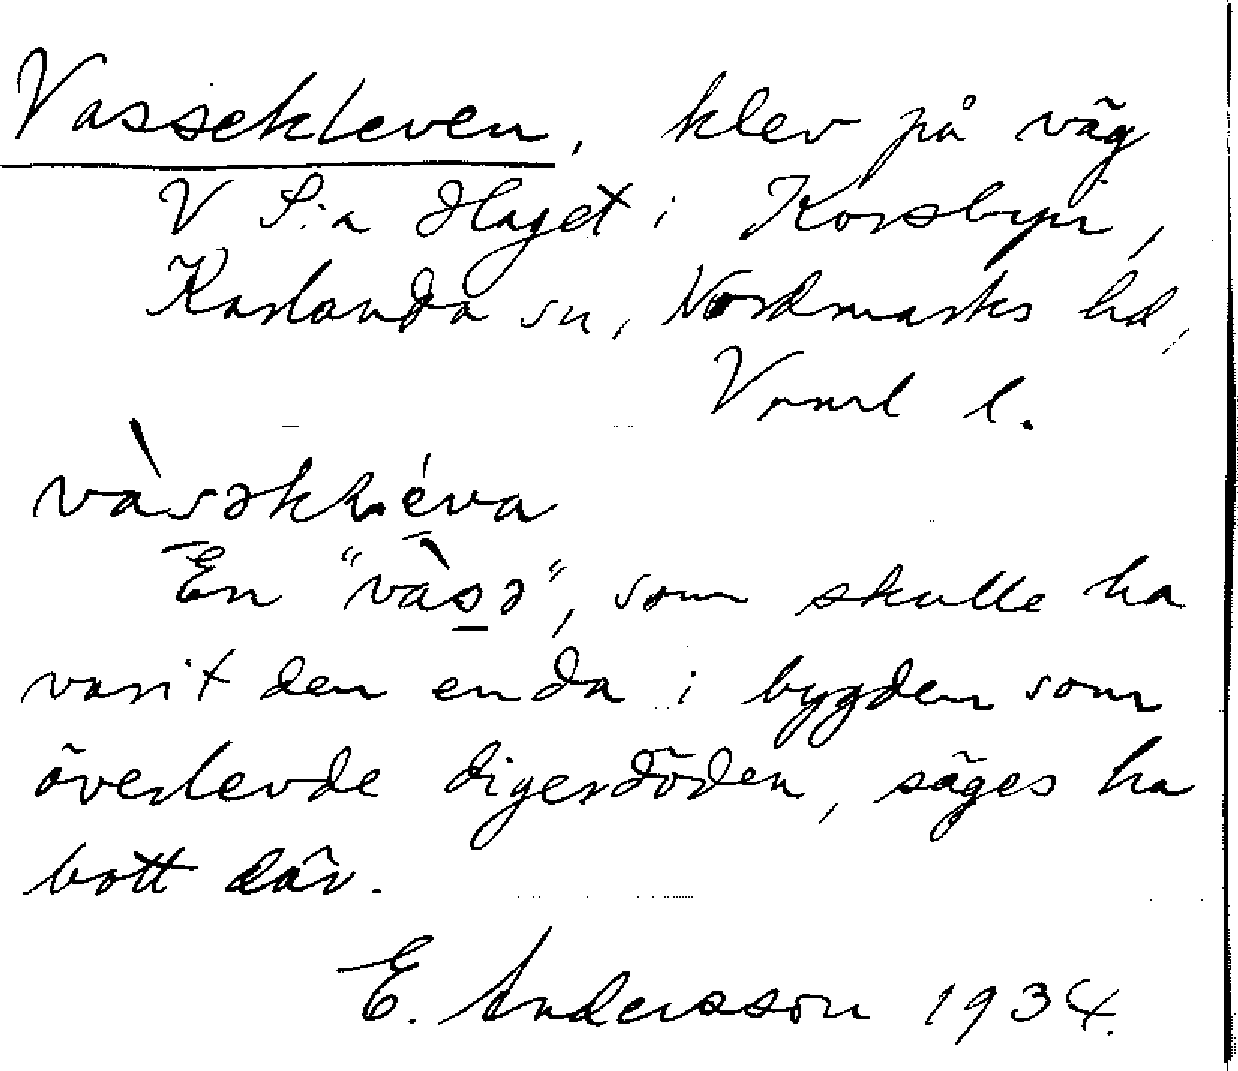 Vassekleven, klev på väg
V S:a Haget i Korsbyn,
Karlanda sn, Nordmarks hd,
Vrml l.
vàsəkḷéva
En "vàsə", som skulle ha
varit den enda i bygden som
överlevde digerdöden, säges ha
bott där.
E. Andersson 1934.